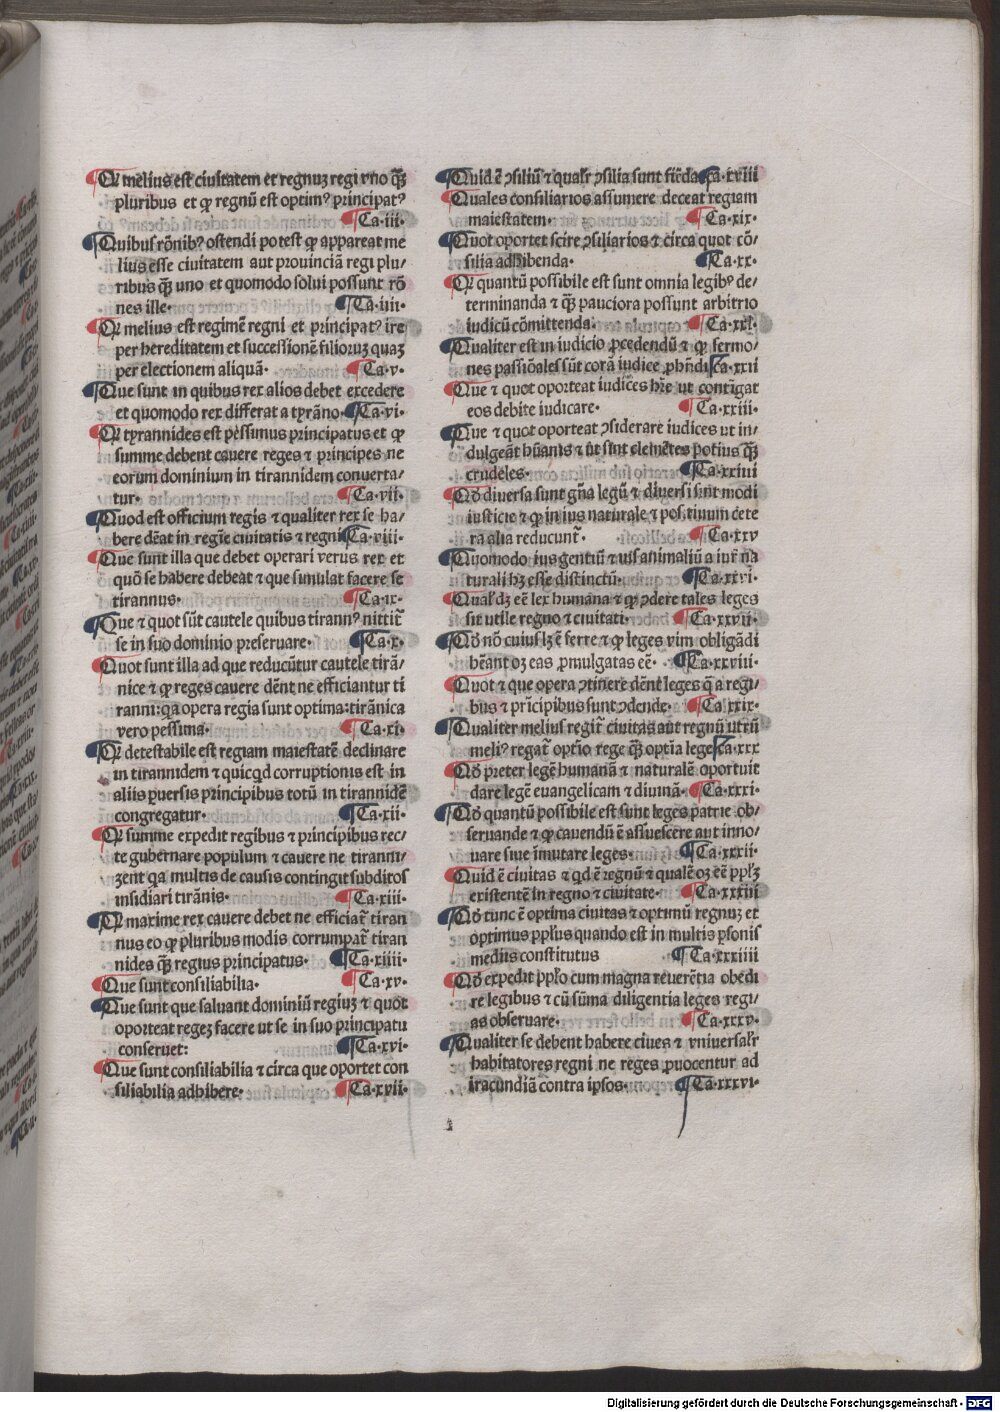 Qꝙ melius est ciuitatem et regnuꝫ regi vno q̃ꝫ
pluribus et ꝙ regnũ est optimꝰ principatꝰ
Ca·iii·
Quibus rõnibꝰ ostendi potest ꝙ appareat me
lius esse ciuitatem aut prouinciã regi plu/
ribus q̃ꝫ uno et quomodo solui possunt rõ
nes ille· Ca·iiii·
Qꝙ melius est regimẽ regni et principatꝰ ire
per hereditatem et successionẽ filioruꝫ quaꝫ
per electionem aliquã· Ca·v·
Que sunt in quibus rex alios debet excedere
et quomodo rex differat a tyrãno· Ca·vi·
Qꝙ tyrannides est pessimus principatus et ꝙ
summe debent cauere reges ⁊ principes ne
eorum dominium in tirannidem conuerta/
tur· Ca·vii·
Quod est officium regis ⁊ qualiter rex se ha/
bere dẽat in regĩe ciuitatis ⁊ regni Ca·viii·
Que sunt illa que debet operari verus rex et
quõ se habere debeat ⁊ que simulat facere se
tirannus· Ca·ix·
Que ⁊ quot sũt cautele quibus tirannꝰ nittit᷑
se in suo dominio preseruare· Ca·x·
Quot sunt illa ad que reducũtur cautele tirã/
nice ⁊ ꝙ reges cauere dẽnt ne efficiantur ti
ranni: q̃a opera regia sunt optima: tirãnica
vero pessima· Ca·xi·
Qꝙ detestabile est regiam maiestatẽ declinare
in tirannidem ⁊ quicq̇d corruptionis est in
aliis ꝑuersis principibus totũ in tirannidẽ
congregatur· Ca·xii·
Qꝙ summe expedit regibus ⁊ principibus rec/
te gubernare populum ⁊ cauere ne tiranni/
ꝫent q̃a multis de causis contingit subditos
insidiari tirãnis· Ca·xiii·
Qꝙ maxime rex cauere debet ne efficiat᷑ tiran
nus eo ꝙ pluribus modis corrumpat᷑ tiran
nides q̃ꝫ regius principatus· Ca·xiiii·
Que sunt consiliabilia· Ca·xv·
Que sunt que saluant dominiũ regiuꝫ ⁊ quot
oporteat regeꝫ facere ut se in suo principatu
conseruet: Ca·xvi·
Que sunt consiliabilia ⁊ circa que oportet con
siliabilia adhibere· Ca·xvii·
Quid ẽ ꝯsiliũ ⁊ qual'r ꝯsilia sunt fiẽda Ca·xviii
Quales consiliarios assumere deceat regiam
maiestatem· Ca·xix·
Quot oportet scire ꝯsiliarios ⁊ circa quot cõ/
silia adhibenda· Ca·xx·
Qꝙ quantũ possibile est sunt omnia legibꝰ de/
terminanda ⁊ q̃ꝫ pauciora possunt arbitrio
iudicũ cõmittenda· Ca·xxi·
Qualiter est in iudicio ꝓcedendũ ⁊ ꝙ sermo/
nes passiõales sũt corã iudice ꝓhñdi Ca·xxii
Que ⁊ quot oporteat iudices hr̃e ut contĩgat
eos debite iudicare· Ca·xxiii·
Que ⁊ quot oporteat ꝯsiderare iudices ut in/
dulgeãt hũanis ⁊ ut sint clemẽtes potius q̃ꝫ
crudeles· Ca·xxiiii
Qõ diuersa sunt gña legũ ⁊ diuersi sint modi
iusticie ⁊ ꝙ in ius naturale ⁊ positiuum cete
ra alia reducunt᷑· Ca·xxv
Quomodo ius gentiũ ⁊ ius animaliũ a iur̃ na
turali hꝫ esse distinctũ· Ca·xxvi·
Qual' dꝫ eẽ lex humana ⁊ ꝙ ꝯdere tales leges
sit utile regno ⁊ ciuitati· Ca·xxvii·
Qõ nõ cuiuslꝫ ẽ ferre ⁊ ꝙ leges vim obligãdi
hẽant oꝫ eas ꝓmulgatas eẽ· Ca·xxviii·
Quot ⁊ que opera ꝯtinere dẽnt leges q̃ a regi/
bus ⁊ pr̃icipibus sunt ꝯdende· Ca·xxix·
Qualiter melius regit᷑ ciuitas aut regnũ utrũ
meliꝰ regat᷑ optĩo rege q̃ꝫ optĩa lege Ca·xxx
Qõ preter legẽ humanã ⁊ naturalẽ oportuit
dare legẽ euangelicam ⁊ diuinã· Ca·xxxi·
Qõ quantũ possibile est sunt leges patrie ob/
seruande ⁊ ꝙ cauendũ ẽ assuescere aut inno/
uare siue ĩmutare leges· Ca·xxxii·
Quid ẽ ciuitas ⁊ q̇d ẽ regnũ ⁊ qualẽ oꝫ eẽ pp'lꝫ
existentẽ in regno ⁊ ciuitate· Ca·xxxiii
Qõ tunc ẽ optima ciuitas ⁊ optimũ regnuꝫ et
optimus pp'lus quando est in multis ꝑsonis
medius constitutus Ca·xxxiiii
Qõ expedit pp'lo cum magna reuerẽtia obedi
re legibus ⁊ cũ sũma diligentia leges regi/
as obseruare· Ca·xxxv·
Qualiter se debent habere ciues ⁊ vniuersal'r
habitatores regni ne reges ꝓuocentur ad
iracundiã contra ipsos· Ca·xxxvi·
Digitalisierung gefördert durch die Deutsche Forschungsgemeinschaft - DFG